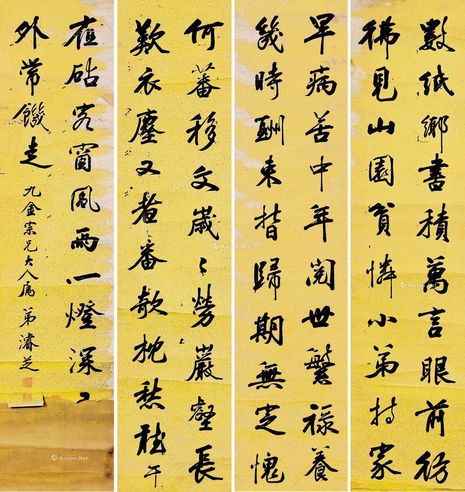 數紙鄉書積萬言眼前彷
彿見山園貧憐小弟持家
早病苦中年閱世繁祿養
幾時酬昔歸期無定愧
何蕃移文歲〻勞巖壑長
歎衣塵又著番欹枕愁聽午
夜砧客窗風雨一燈深〻
外常饑走
九金宗兄大人屬 弟濬芝